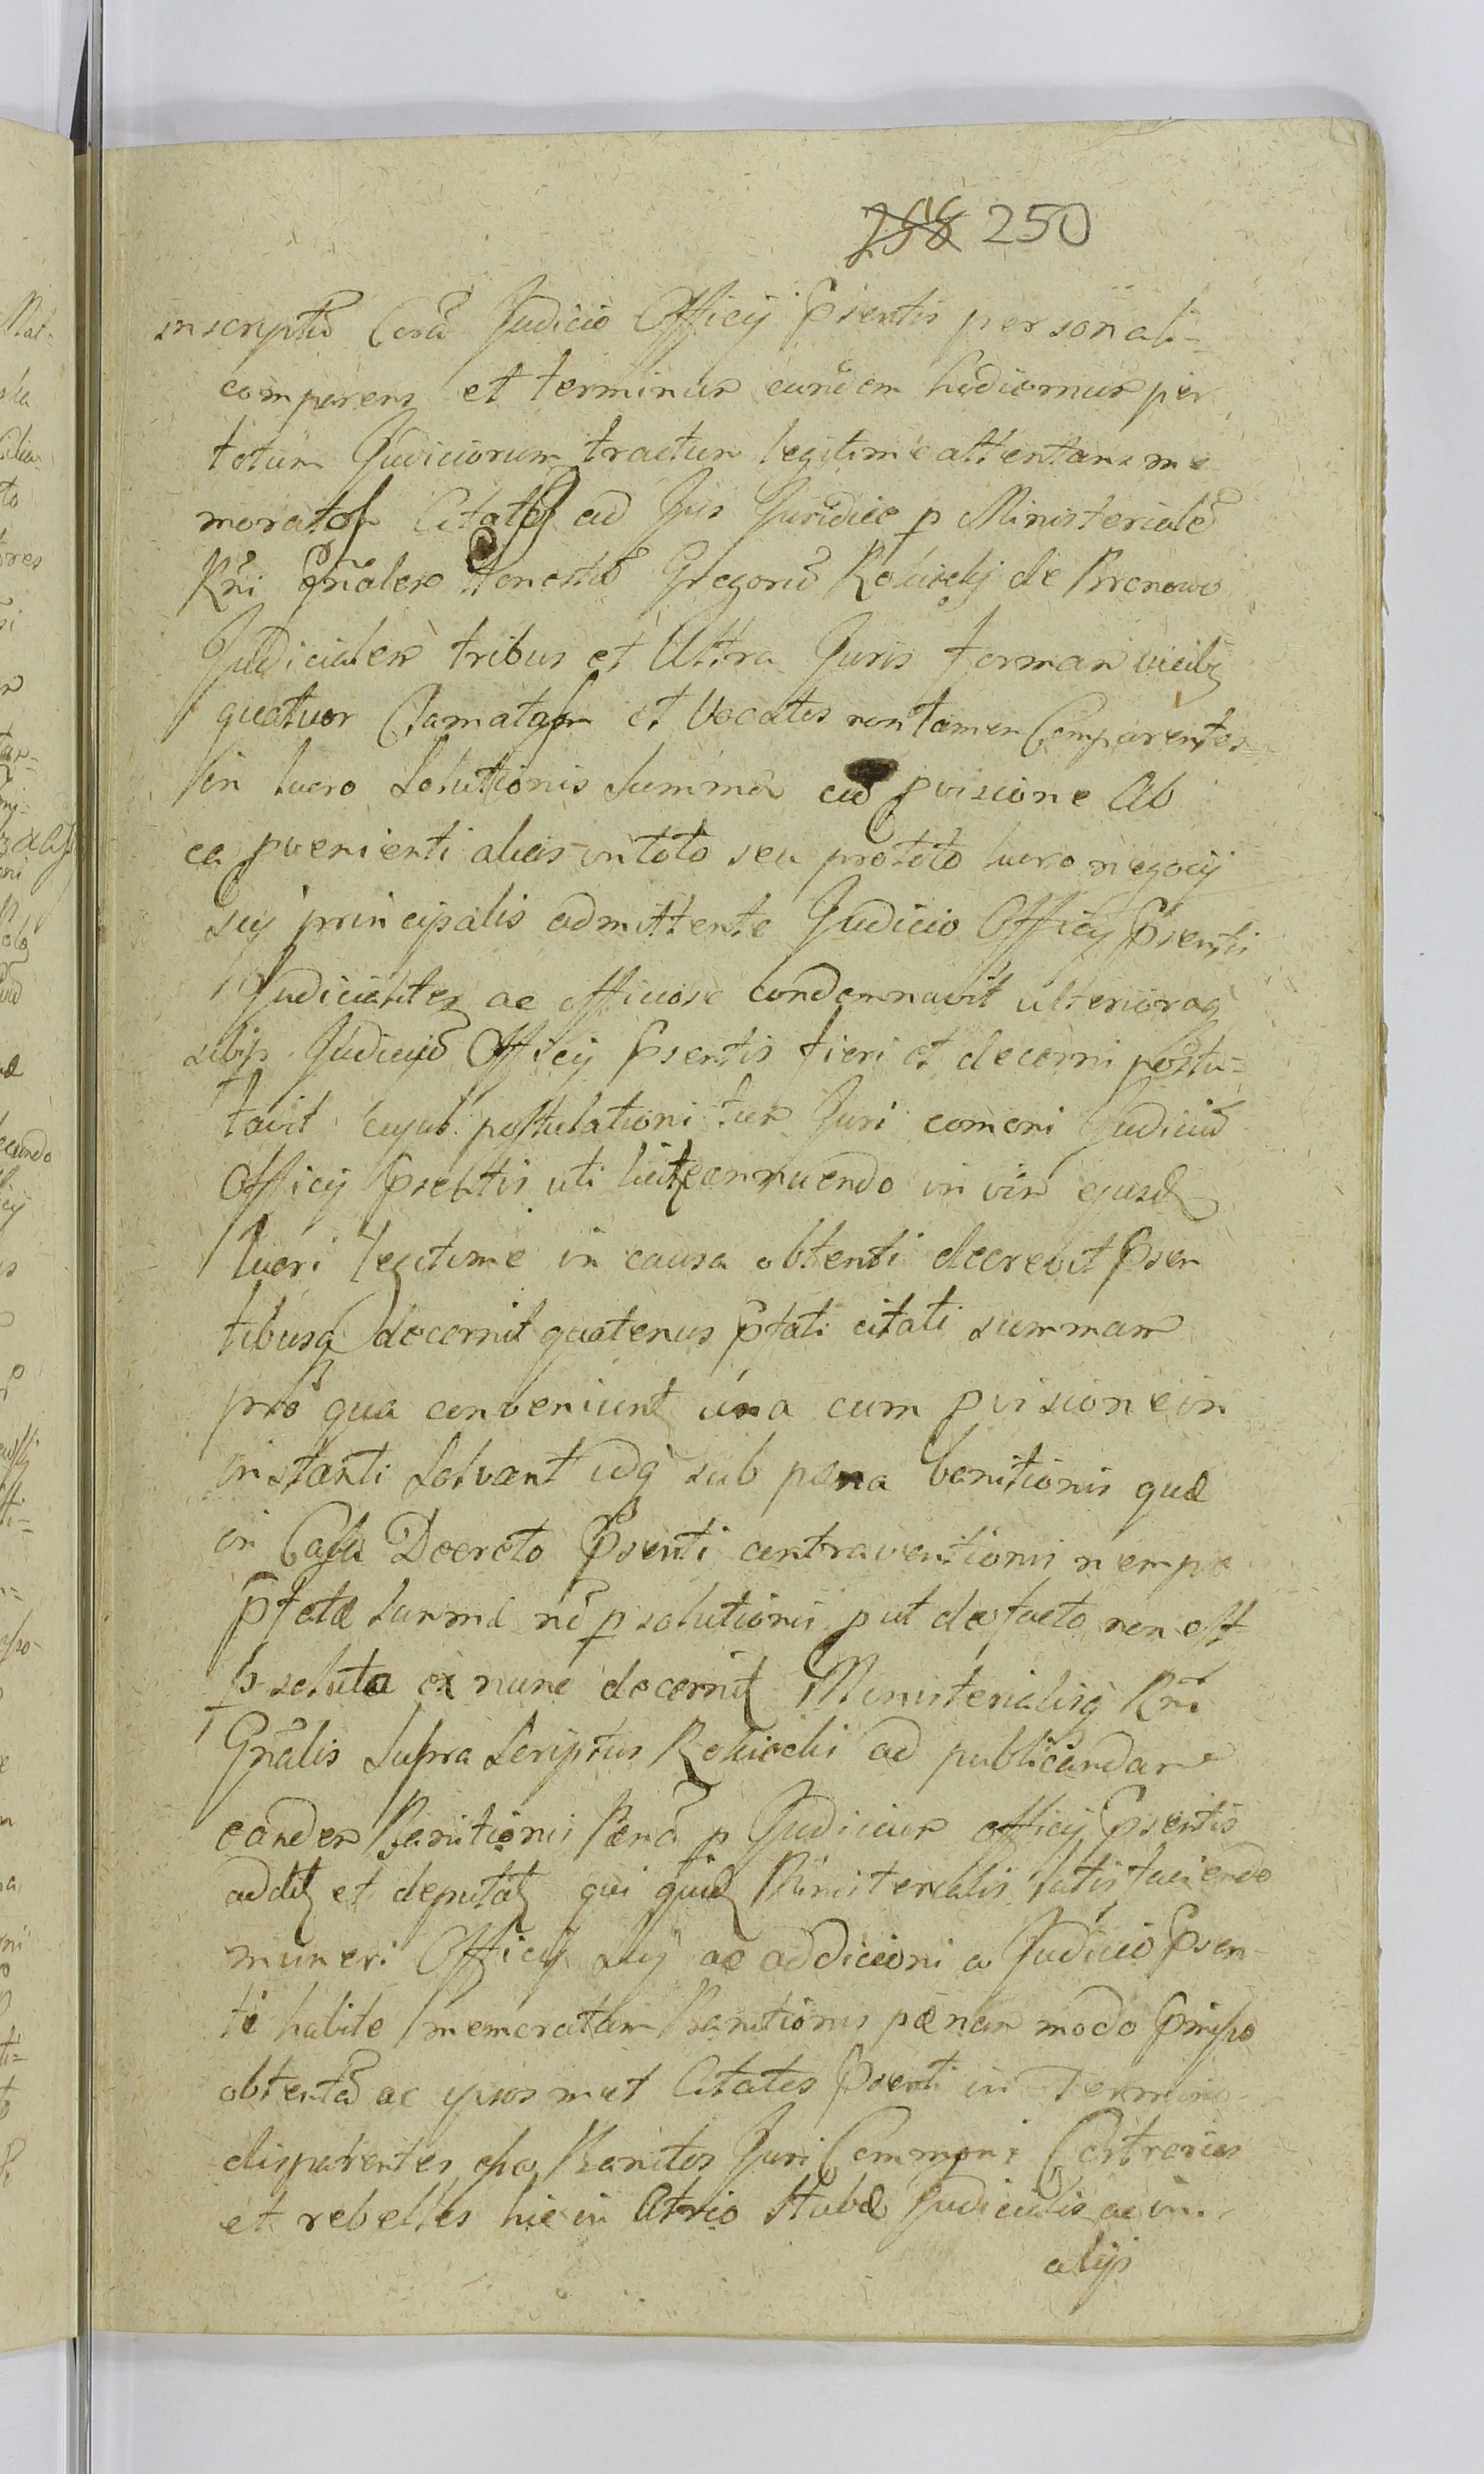 258 250
inscriptũ Corã Judicio Officij Psentis personali-
comparens et terminum eundem hodiernum per
totum Judiciorum tractum legitime attentans me
moratos Citatos ad Jus Juridice p Ministerialẽ
Rñi Gñalem Honestũ Gregoriũ de
Judicialem tribus et Ultra Juris formam vicibq
quatuor Clamatos et Vocatos non tamen Comparentes
in lucro Solutionis Summæ cũ pvisione Ab
ea pvenienti alias in toto seu pro toto lucro negocij
sui principalis admittente Judicio Officij Psentis
Judicialiter ac officiose condemnavit ulterioraq
sibi p Judiciũ Officij Psentis fieri et decerni postu-
lavit cujus postulationi tum Juri comõni Judiciũ
Officij Psentis uti annuendo in vim ejusd
lucri legitime in causa obtenti decrevit Psen
tibusq decernit quatenus Pfati citati summam
pro qua conveniunt una cum pvisione in
instanti Solvant idq sub pœna banitionis quæ
in Casu Decreto Psenti contraventionis nempe
Pfatæ Summæ nõ p solutionis put de facto non est
p soluta ex nunc decernit Ministerialisq Rñi
Gñalis Supra Scriptus ad publicandam
eandem Banitionis Pænã p Judicium officij Psentis
additq et deputatq qui quid Ministerialis satis faciendo
muneri Officij sui ac addicioni a Judicio Psen-
ti habite memoratam Banitionis pœnam modo Pmisso
obtentã ac ipsos met Citatos Psenti in Termino
disparentes Banitos Juri Communi Contrarios
et rebelles hic in Atrio Stubæ Judicialis ac in
alijs